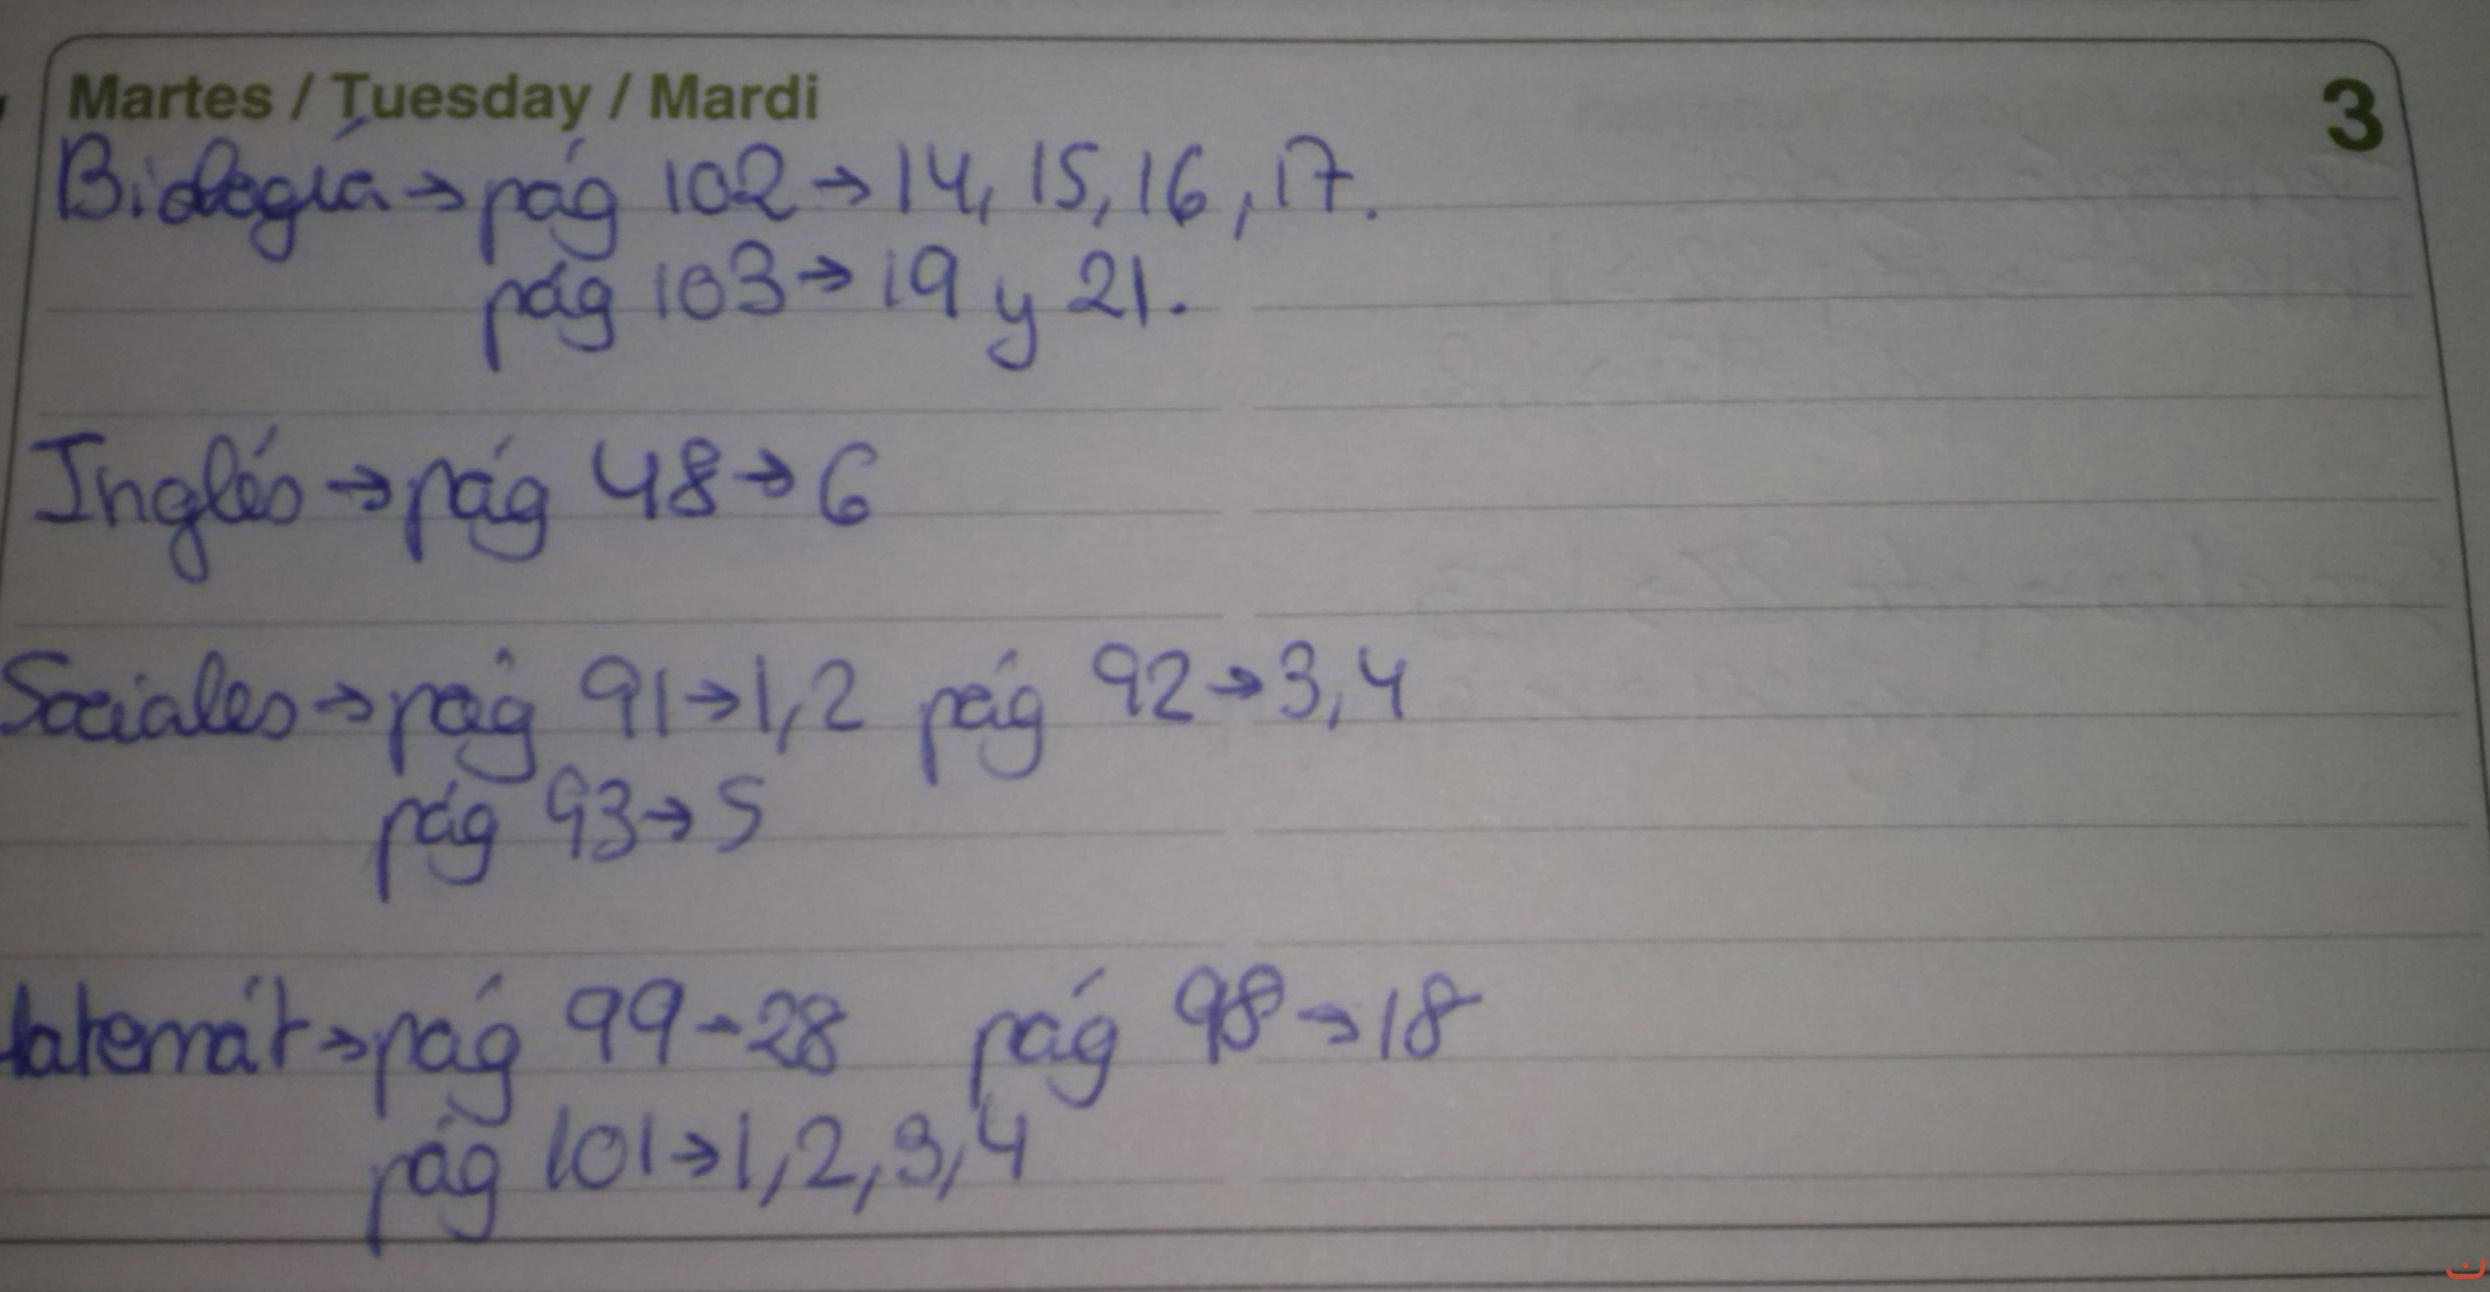 Martes / Tuesday / Mardi 3
Biología → pág 102 → 14, 15, 16, 17.
pág 103 → 19 y 21.
Inglés → pág 48 → 6
Sociales → pág 91 → 1,2 pág 92 → 3,4
pág 93 → 5
atemát → pág 99 → 28 pág 98 → 18
pág 101 → 1,2,3,4